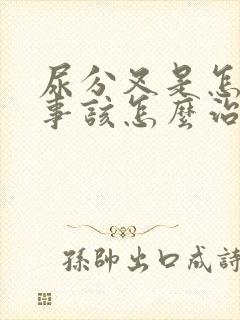 尿分叉是怎
事該怎麼治
孫帥出口成詩